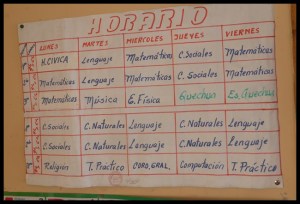 HORARIO
LUNES MARTES MIERCOLES JUEVES VIERNES
H. CIVICA Lenguaje Matemáticas C. Sociales Matemáticas
Matemáticas Lenguaje Matemáticas C. Sociales Matemáticas
Matematicas Música E. Física Quechua Es. Quechua
C. Sociales C. Naturales Lenguaje C. Naturales Lenguaje
C. Sociales C. Naturales Lenguaje C. Naturales Lenguaje
Religión T. Práctico CORO, GRAL. Computación T. Práctico